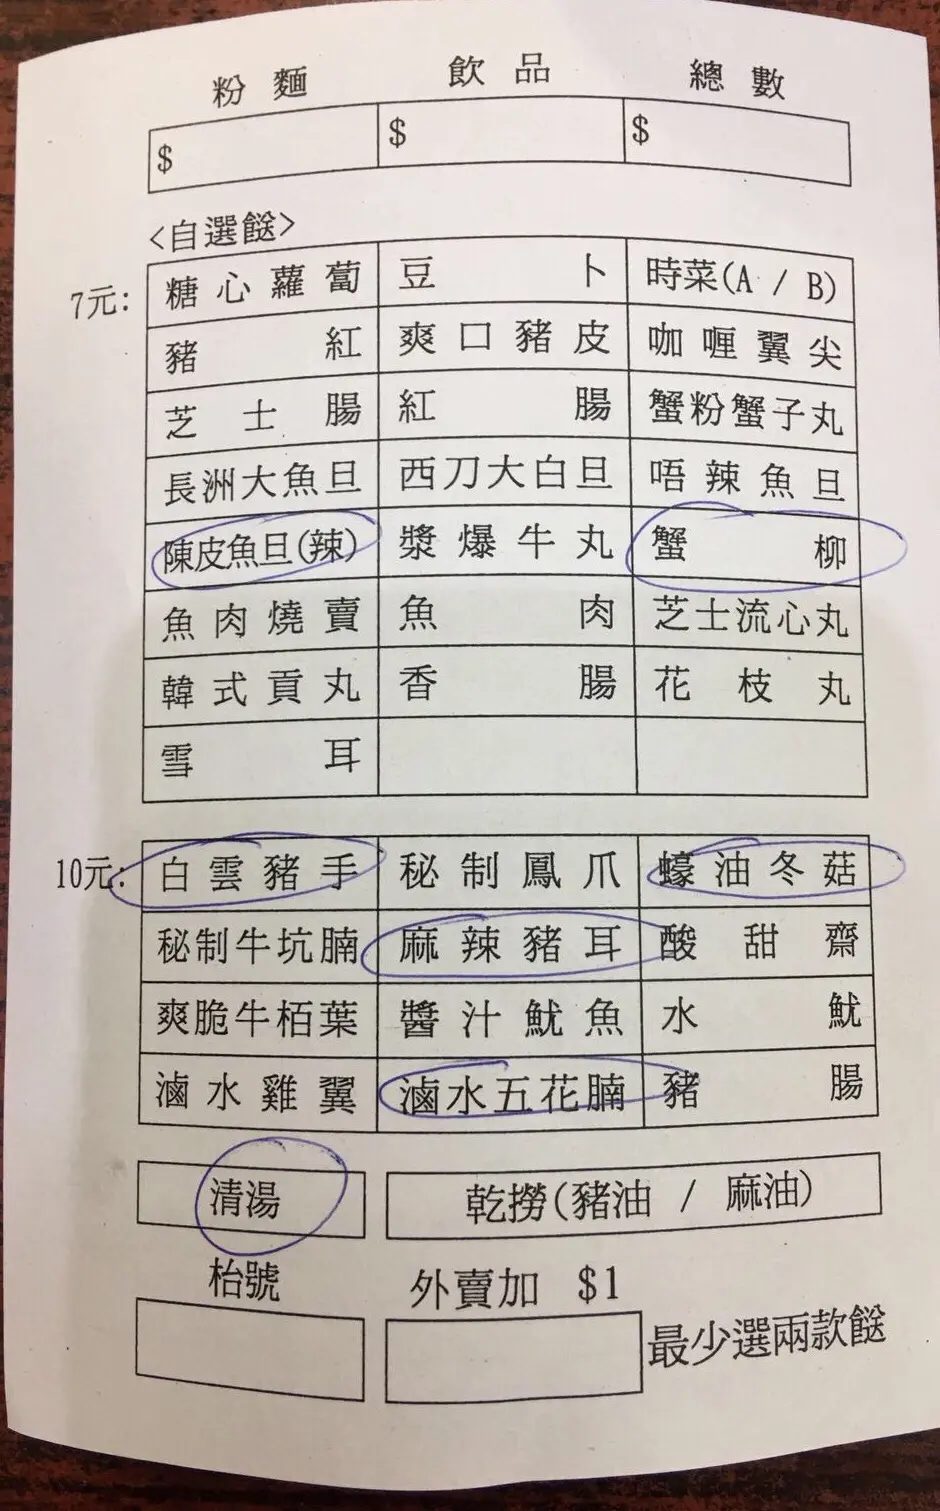 粉麵 飲品 總數
$ $ $
<自選餸>
7元: 糖心蘿蔔 豆卜 時菜(A / B)
豬紅 爽口豬皮 咖喱翼尖
芝士腸 紅腸 蟹粉蟹子丸
長洲大魚旦 西刀大白旦 唔辣魚旦
陳皮魚旦(辣) 漿爆牛丸 蟹柳
魚肉燒賣 魚肉 芝士流心丸
韓式貢丸 香腸 花枝丸
雪耳
10元: 白雲豬手 秘制鳳爪 蠔油冬菇
秘制牛坑腩 麻辣豬耳 酸甜齋
爽脆牛栢葉 醬汁魷魚 水魷
滷水雞翼 滷水五花腩 豬腸
清湯 乾撈(豬油 / 麻油)
枱號 外賣加 $1
最少選兩款餸